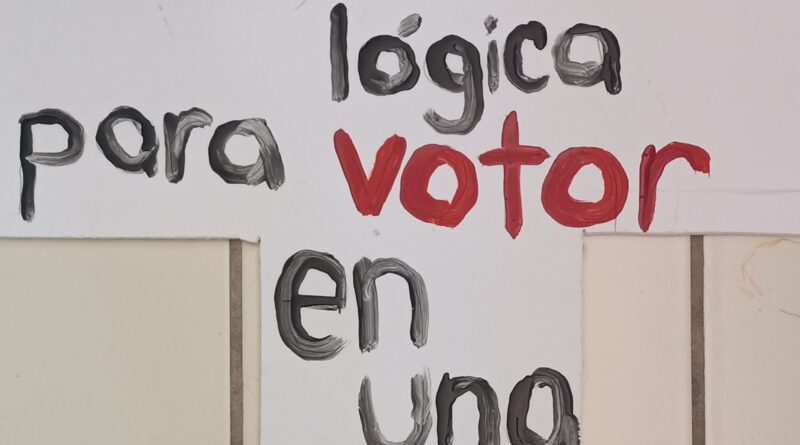 lógica
para votor
en
una